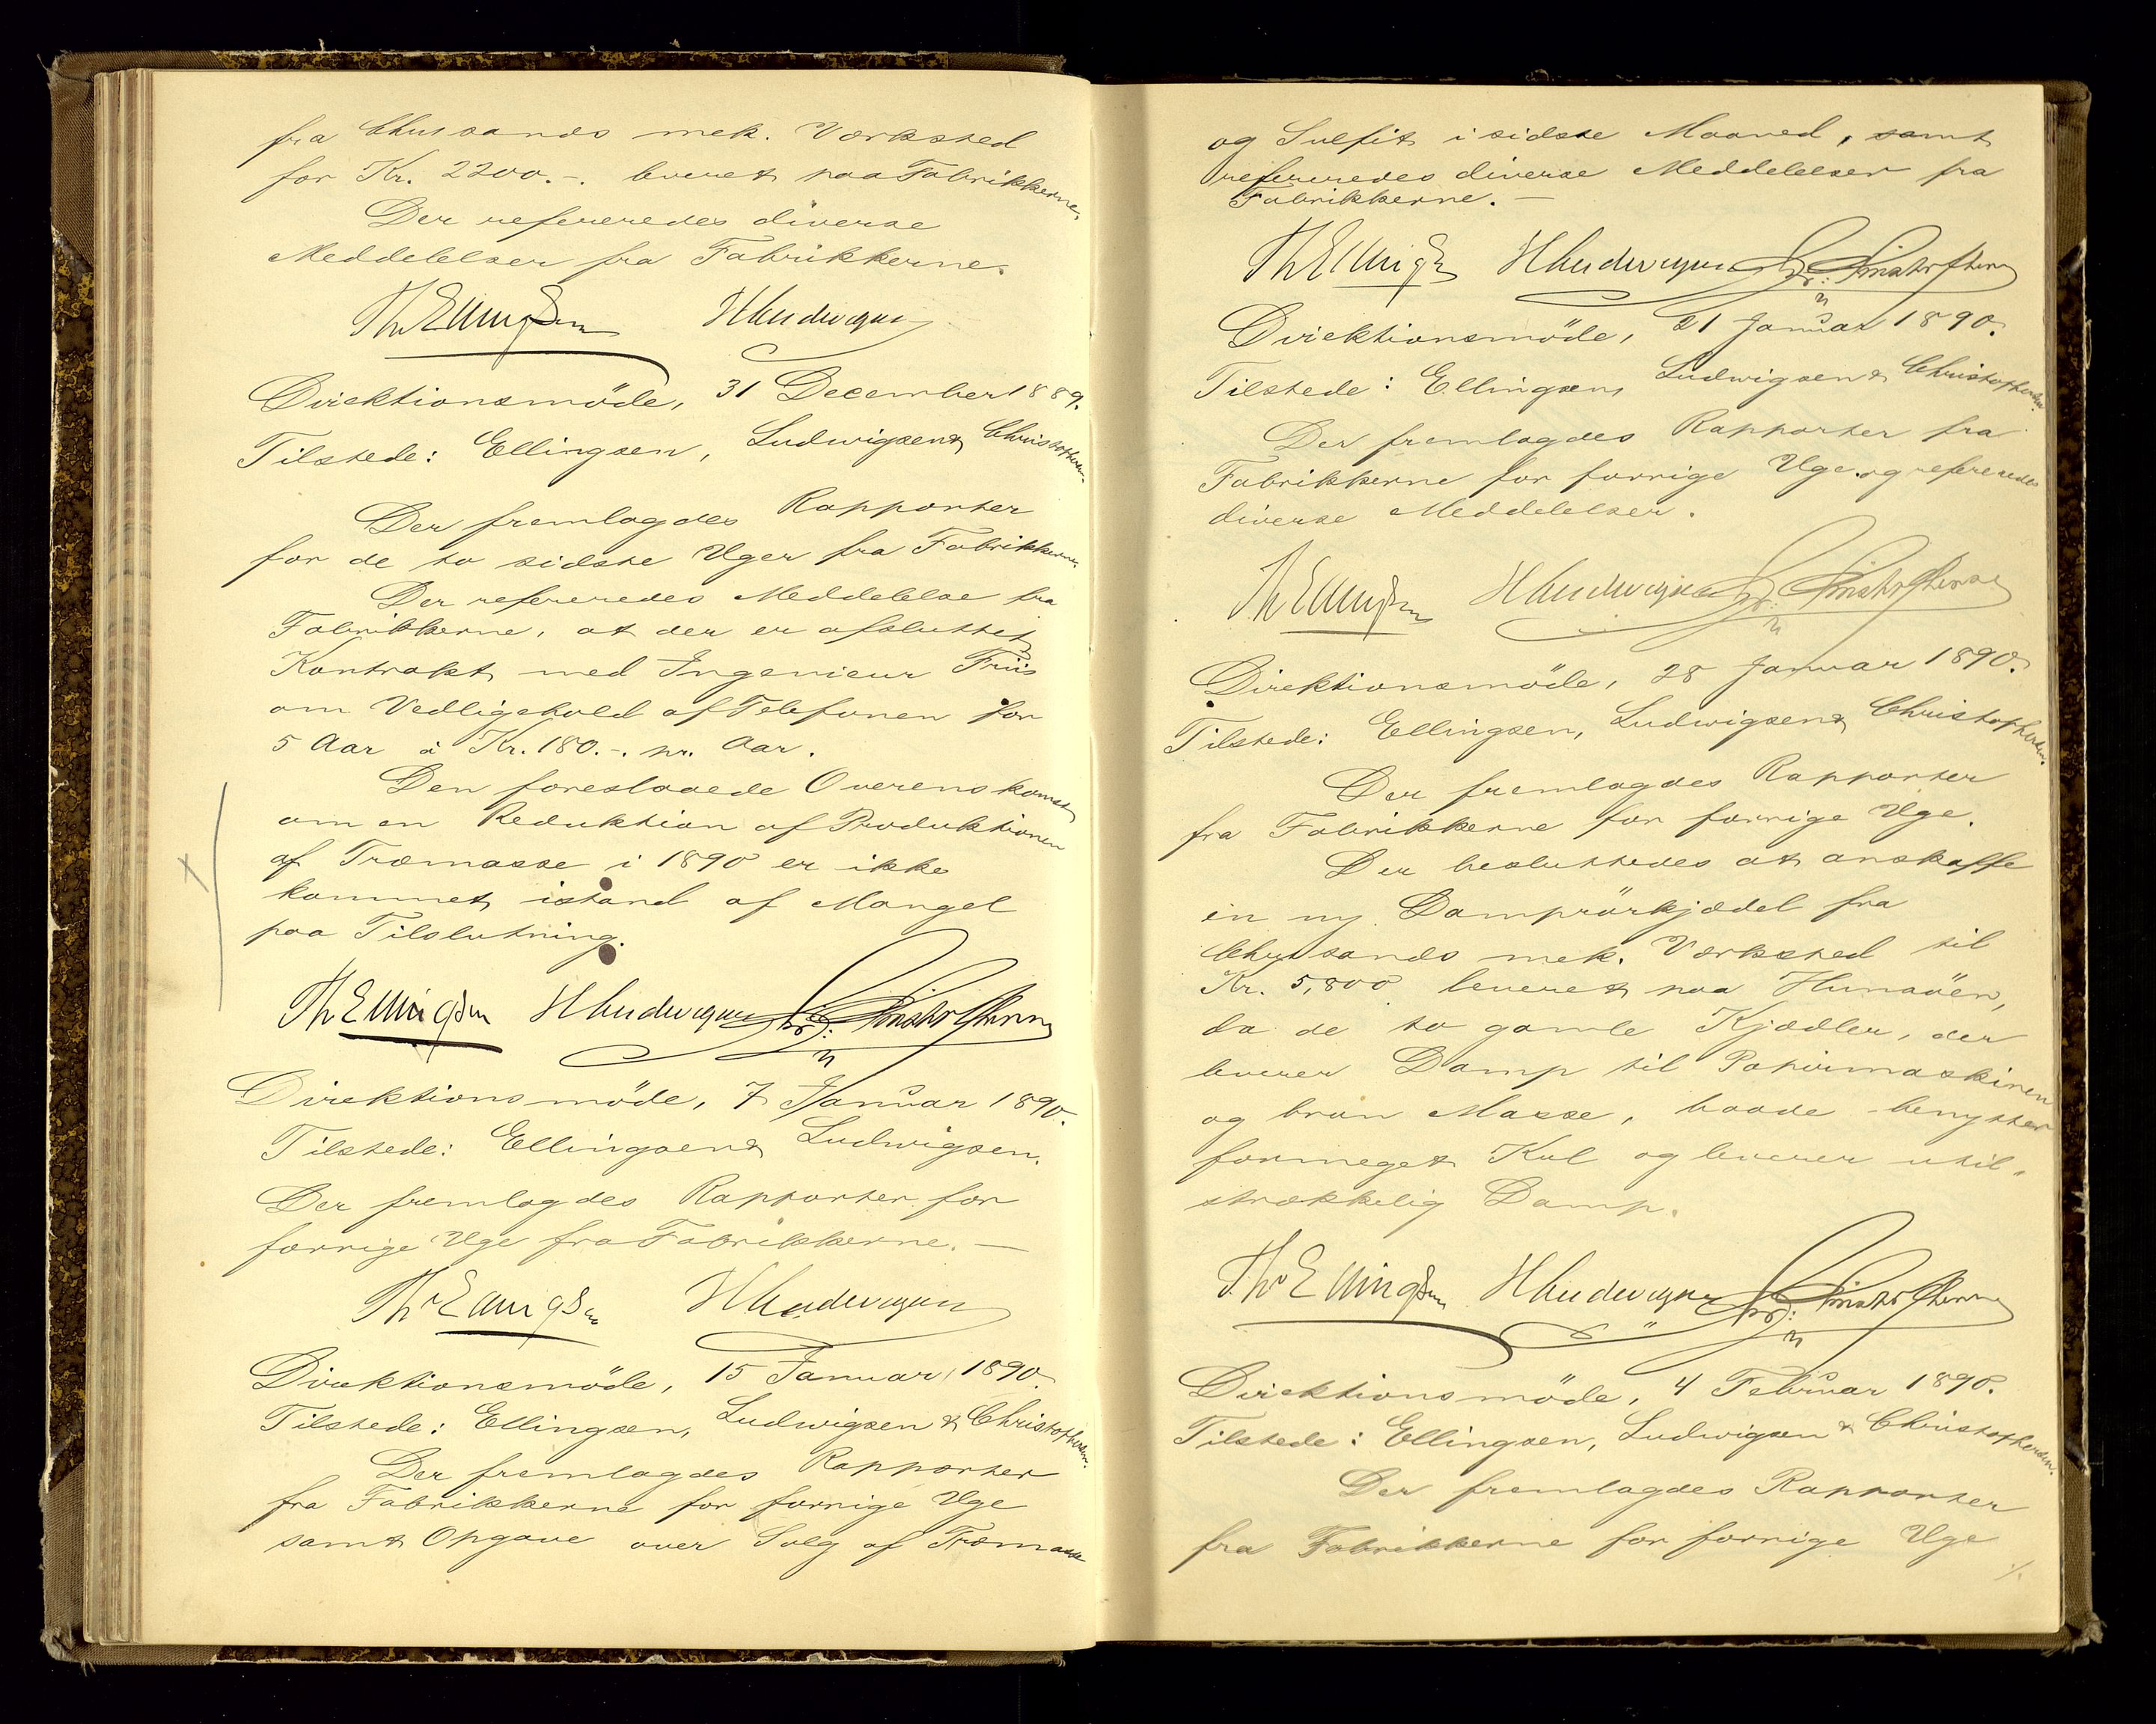 fra Chrissands mek. Værksted
for Kr. 2200.-. leveret paa Fabrikkerne.
Der refereredes diverse
Meddelelser fra Fabrikkerne.
Th Ellingsen HLudwigsen
Direktionsmöde, 31 December 1889.
Tilstede: Ellingsen, Ludwigsen & Christophersen.
Der fremlagdes Rapporter
for de to sidste Uger fra Fabrikkerne.
Der refereredes Meddelelse fra
Fabrikkerne, at der er afsluttet
Kontrakt med Ingenieur Friis
om Vedligehold af Telefonen for
5 Aar à Kr. 180.-. pr. Aar.
Den foreslaaede Overenskomst
om en Reduktion af Produktionen
af Træmasse i 1890 er ikke
kommet istand af Mangel
paa Tilslutning.
Th Ellingsen HLudwigsen Christophersen
Direktionsmöde, 7 Januar 1890.
Tilstede: Ellingsen & Ludwigsen.
Der fremlagdes Rapporter for
forrige Uge fra Fabrikkerne. —
Th Ellingsen HLudwigsen
Direktionsmöde, 15 Januar 1890.
Tilstede: Ellingsen, Ludwigsen & Christophersen.
Der fremlagdes Rapporter
fra Fabrikkerne for forrige Uge
samt Opgave over Salg af Træmasse
og Sulfit i sidste Maaned, samt
refereredes diverse Meddelelser fra
Fabrikkerne. —
Th Ellingsen HLudwigsen Christophersen
Direktionsmöde, 21 Januar 1890.
Tilstede: Ellingsen, Ludwigsen & Christophersen.
Der fremlagdes Rapporter fra
Fabrikkerne for forrige Uge og refereredes
diverse Meddelelser.
Th Ellingsen HLudwigsen Christophersen
Direktionsmöde, 28 Januar 1890.
Tilstede: Ellingsen, Ludwigsen & Christophersen.
Der fremlagdes Rapporter
fra Fabrikkerne for forrige Uge.
Der besluttedes at anskaffe
en ny Damprörkjædel fra
Chrissands mek. Værksted til
Kr. 5,800 leveret paa Hunsöen,
da de to gamle Kjædler, der
leverer Damp til Papirmaskinen
og brun Masse, baade benytter
formeget Kul og leverer util-
strækkelig Damp.
Th Ellingsen HLudwigsen Christophersen
Direktionsmöde, 4 Februar 1890.
Tilstede: Ellingsen, Ludwigsen & Christophersen.
Der fremlagdes Rapporter
fra Fabrikkerne for forrige Uge
./.